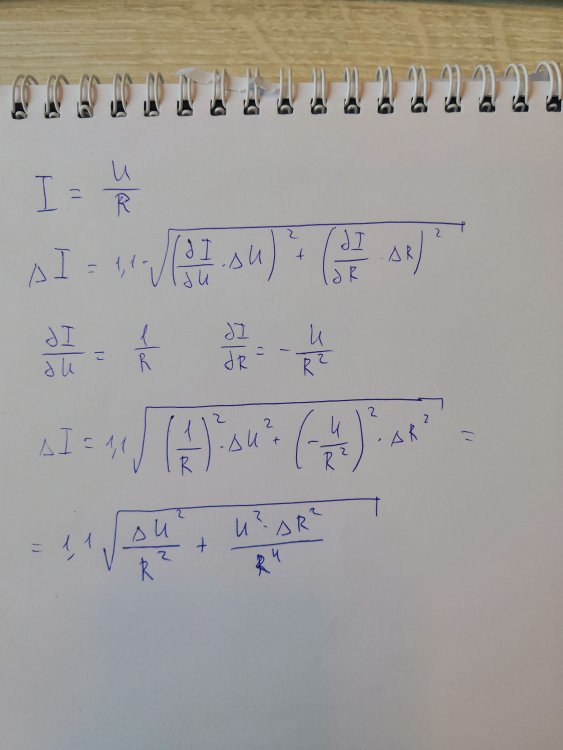 I = U/R
ΔI = 1,1·√((∂I/∂U · ΔU)² + (∂I/∂R · ΔR)²)
∂I/∂U = 1/R ∂I/∂R = - U/R²
ΔI = 1,1 √((1/R)² · ΔU² + (-U/R²)² · ΔR²) =
= 1,1 √(ΔU²/R² + U² · ΔR²/R⁴)